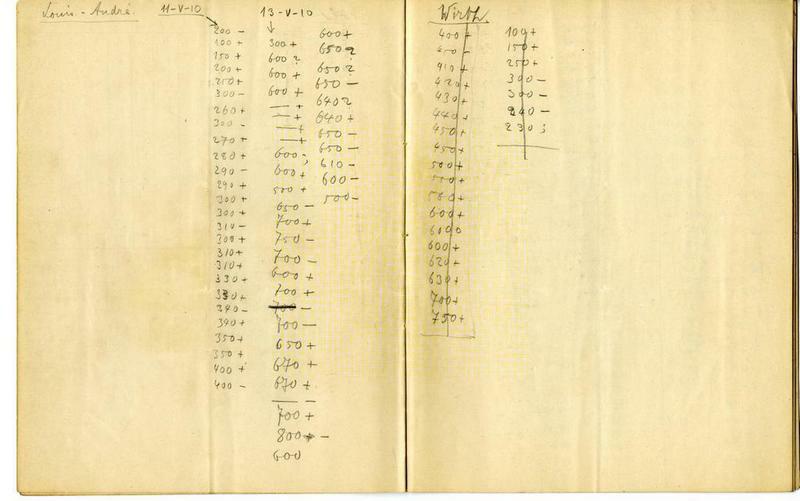 Louis-André.
11-V-10
200 -
100 +
150 +
200 +
250 +
300 -
260 +
300 -
270 +
280 +
290 -
290 +
300 +
300 +
310 -
300 +
310 +
310 +
330 +
340 -
340 +
350 +
350 +
400 +
400 -
13-V-10
300 +
600 ?
600 +
600 +
— +
— +
— +
— +
600 -
600 +
500 +
650 -
700 +
750 -
700 -
600 +
700 +
700 -
700 -
650 +
670 +
670 +
— -
700 +
800 + -
600
600 +
650 ?
650 ?
650 -
640 ?
640 +
650 -
650 -
610 -
600 -
500 -
Wirth.
400 +
410 +
420 +
430 +
440 +
450 +
450 +
500 +
500 +
580 +
600 +
600 0
600 +
620 +
630 +
700 +
750 +
100 +
150 +
250 +
300 -
300 -
240 -
230 ;